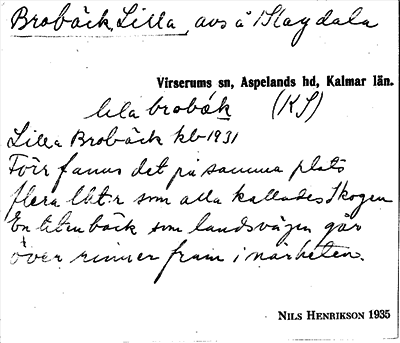 Brobäck, Lilla, avs å Slagdala
Virserums sn, Aspelands hd, Kalmar län.
lila brobäk (KS)
Lilla Brobäck kb 1931
Förr fanns det på samma plats
flera lht:r som alla kallades Skogen
En liten bäck som landsvägen går
över rinner fram i närheten.
NILS HENRIKSON 1935